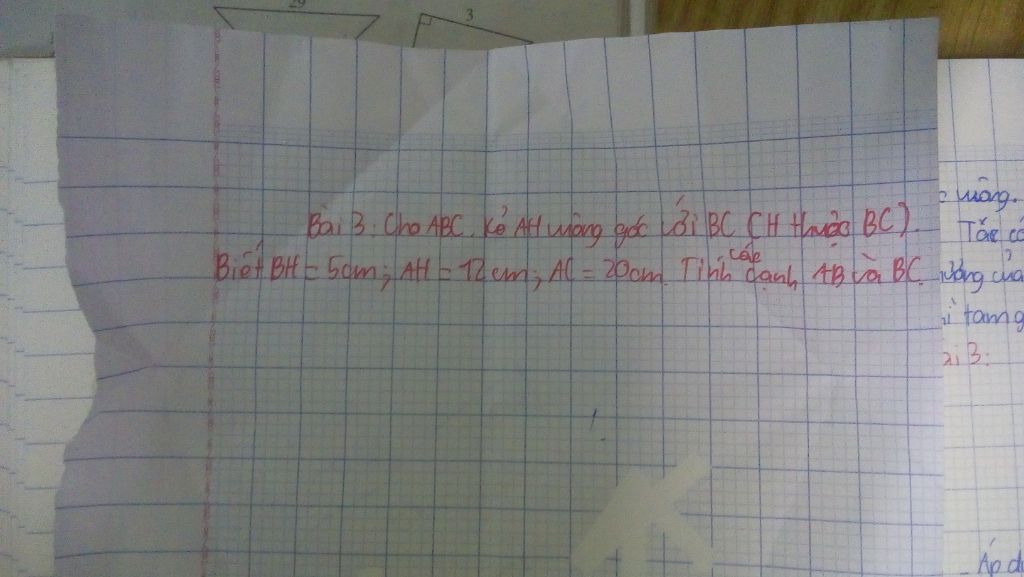 29
3
Bài 3: Cho ABC. Kẻ AH vuông góc với BC (H thuộc BC).
Biết BH = 5cm; AH = 12cm; AC = 20cm. Tính các cạnh AB và BC.
vuông.
Tắc
của
tam g
ài 3:
- Áp d